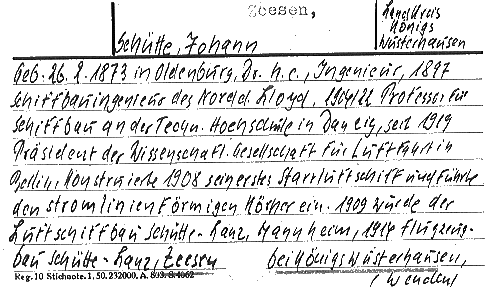 Zeesen,
Landkreis
Königs
Wusterhausen
Schütte, Johann
Geb. 26. 2. 1873 in Oldenburg, Dr. h.c., Ingenieur, 1897
Schiffbauingenieur des Nordd. Lloyd, 1904/22 Professor für
Schiffbau an der Techn. Hochschule in Danzig, seit 1919
Präsident der Wissenschaftl. Gesellschaft für Luftfahrt in
Berlin, Konstruierte 1908 sein erstes Starrluftschiff und führte
den stromlinienförmigen Körper ein. 1909 wurde der
Luftschiffbau Schütte-Lanz, Mannheim, 1914 Flugzeug-
bau Schütte-Lanz, Zeesen bei Königswusterhausen,
Reg. 10 Stichnote. 1, 50. 232000. A. 803. 8.4062
(Wenden)